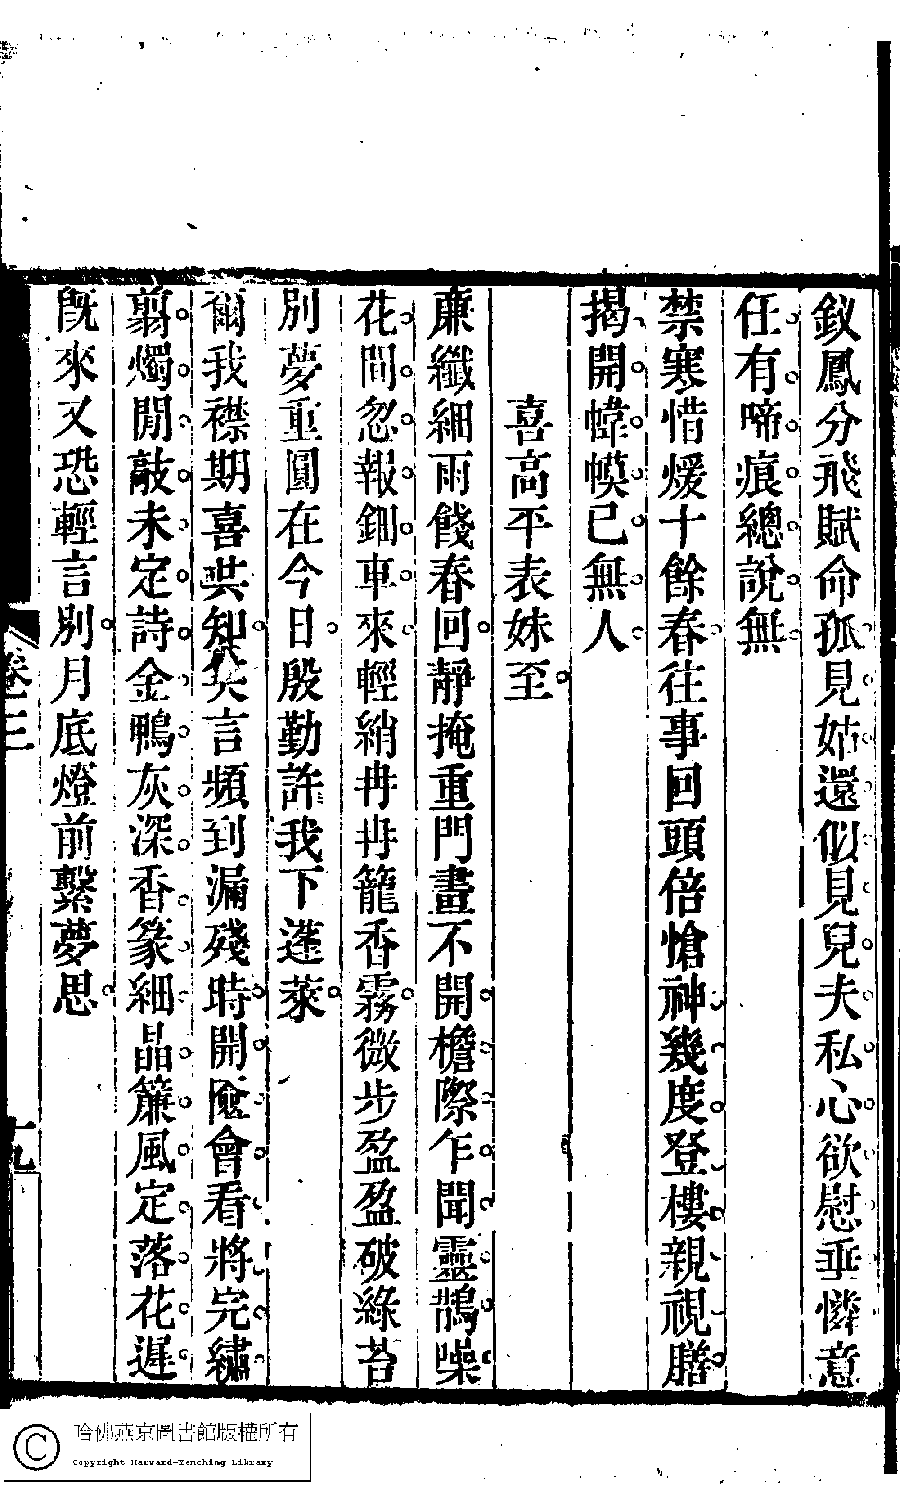 釵鳳分飛賦命孤見姑還似見兒夫私心欲慰垂憐意
任有啼痕總說無
禁寒惜煖十餘春往事回頭倍愴神幾度登樓親視膳
揭開幃幙已無人
喜高平表妹至
廉纖細雨餞春回靜掩重門晝不開檐際乍聞靈鵲噪
花間忽報鈿車來輕綃冉冉籠香霧微步盈盈破綠苔
別夢重圓在今日殷勤許我下蓬萊
爾我襟期喜共知笑言頻到漏殘時開奩會看將完繡
翦燭閒敲未定詩金鴨灰深香篆細晶簾風定落花遲
旣來又恐輕言別月底燈前繫夢思
卷三
十九
哈佛燕京圖書館版權所有
Copyright Harvard-Yenching Library